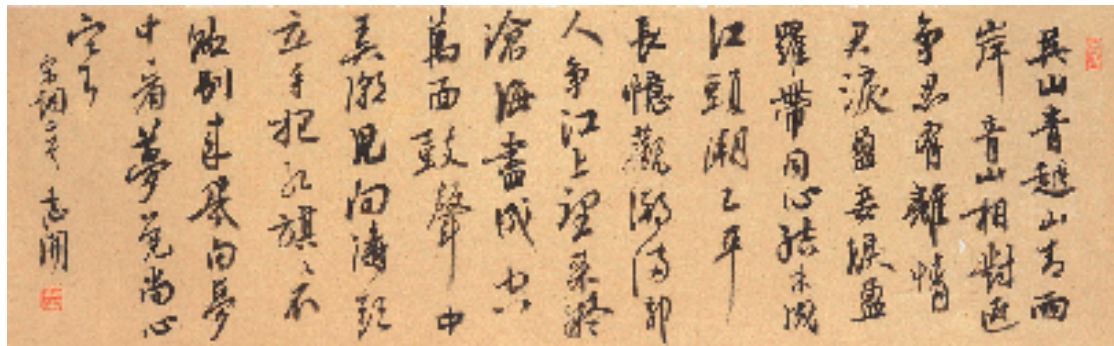 吳山青越山青兩
岸青山相對迎
爭忍有離情
君淚盈妾淚盈
羅帶同心結未成
江頭潮已平
長憶觀潮滿郭
人爭江上望來疑
滄海盡成空
萬面鼓聲中
弄潮兒向濤頭
立手把紅旗〻不
濕別來幾向夢
中看夢覺尚心
寒
宋詞二首 志開